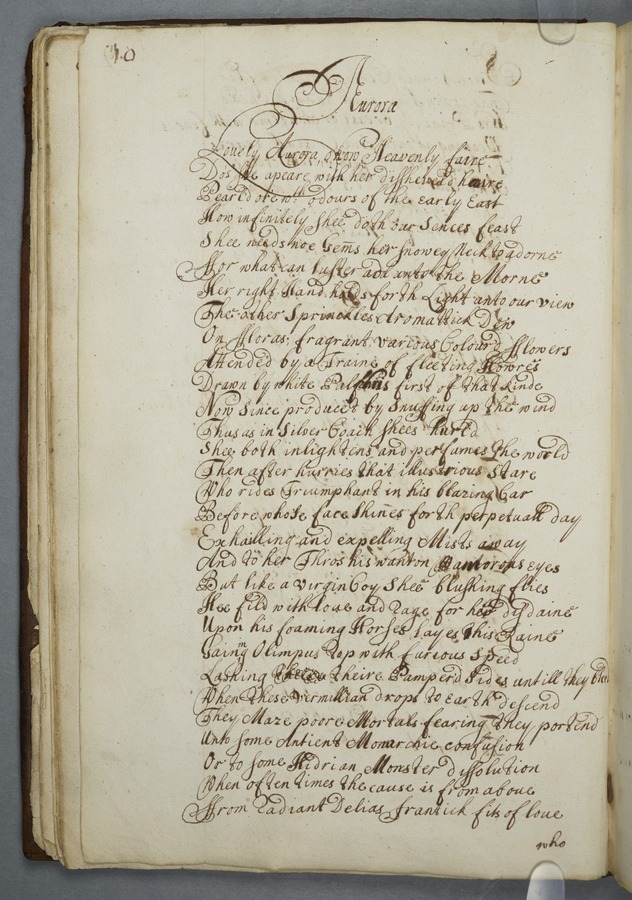 40
Aurora
Lovely Aurora, o how Heavenly faire
Dos she apeare with her dissheveld haire
Pearld ore wth odours of the early East
How infinitely Shee doth our Sences feast
Shee needs noe Gems her snowey Neck to adorne
Ffor what can luster add unto the Morne
Her right Hand holds forth Light unto our view
The other Sprinckles Aromattick Dew
On Ffloras, fragrant, various Colourd Fflowers
Attended by a Traine of fleeting Howres
Drawn by white Palfries first of that kinde
Now Since produced by Snuffing up the wind
Thus as in Silver Coach Shees hurld
Shee both inlightens and perfumes the world
Then after hurries that illustrious Stare
Who rides Triumphant in his blazing Car
Before whose face Shines forth perpetuall day
Exhailling and expelling Mists away
And to her Throws his wanton Eyes
But like a virgin Coy Shee blushing flies
Hee fild with love and Rage for her disdaine
Upon his foaming Horses Layes this Raine
Gaining Olimpus top with furious Speed
Lashing theire Pamperd Sides untill they bleed
When these vermillian drops to earth descend
They Maze poore Mortals fearing they portend
Unto some Antient Monarchie confusion
Or to some Hidrian Monster dissolution
When often times the cause is from above
Ffrom Radiant Delias frantick fits of love
who